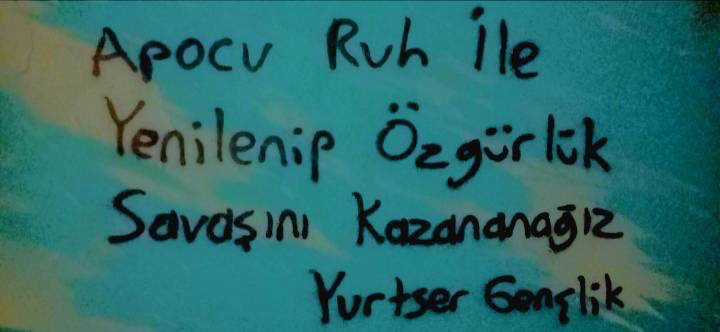 Apocu Ruh İle
Yenilenip Özgürlük
Savaşını Kazananağız
Yurtser Gençlik